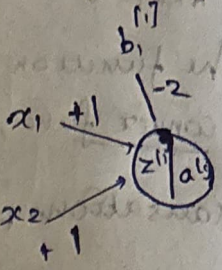 b₁^[1]
-2
x₁ +1
z^[1] a^[1]
x₂
+1